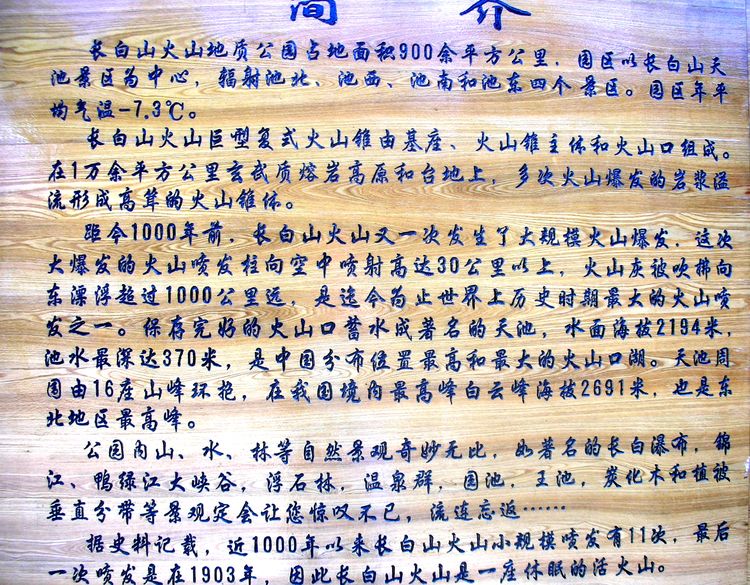 简 介
长白山火山地质公园占地面积900余平方公里，园区以长白山天
池景区为中心，辐射池北、池西、池南和池东四个景区。园区年平
均气温-7.3℃。
长白山火山巨型复式火山锥由基座、火山锥主体和火山口组成。
在1万余平方公里玄武质熔岩高原和台地上，多次火山爆发的岩浆溢
流形成高耸的火山锥体。
距今1000年前，长白山火山又一次发生了大规模火山爆发，这次
大爆发的火山喷发柱向空中喷射高达30公里以上，火山灰被吹拂向
东漂浮超过1000公里远，是迄今为止世界上历史时期最大的火山喷
发之一。保存完好的火山口蓄水成著名的天池，水面海拔2194米，
池水最深达370米，是中国分布位置最高和最大的火山口湖。天池周
围由16座山峰环抱，在我国境内最高峰白云峰海拔2691米，也是东
北地区最高峰。
公园内山、水、林等自然景观奇妙无比，如著名的长白瀑布，锦
江、鸭绿江大峡谷，浮石林，温泉群，园池，王池，炭化木和植被
垂直分带等景观定会让您惊叹不已，流连忘返……
据史料记载，近1000年以来长白山火山小规模喷发有11次，最后
一次喷发是在1903年，因此长白山火山是一座休眠的活火山。